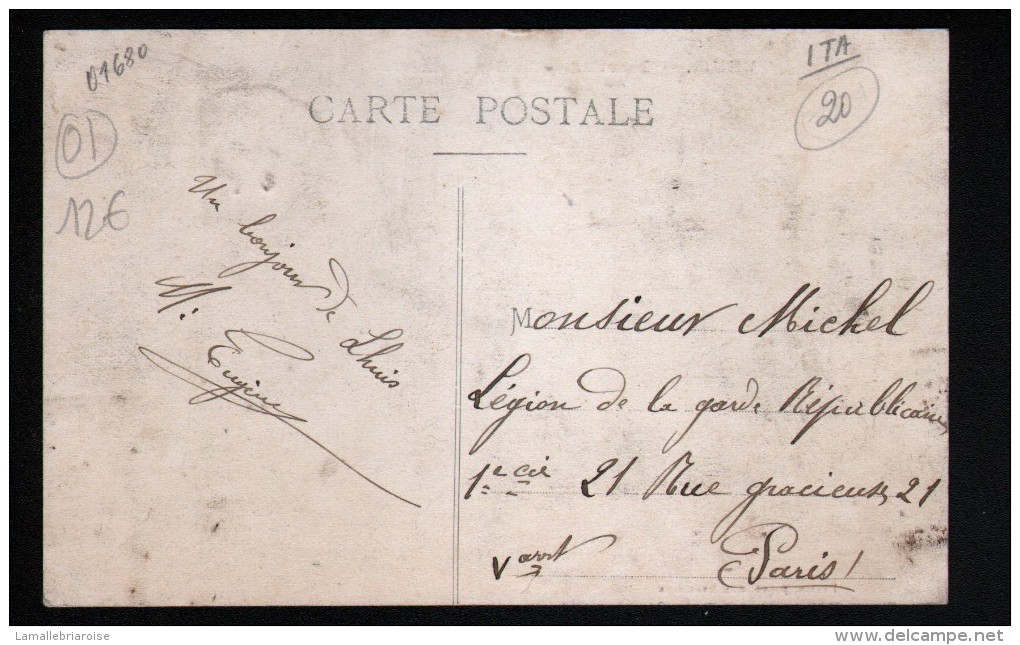 01680
ITA
20
CARTE POSTALE
01
12€
Un bonjour de Lhuis
M. Eugène
Monsieur Michel
Légion de la garde Républicaine
1e cie 21 Rue gracieuse, 21
V arrt Paris!
Lamallebriaroise
www.delcampe.net